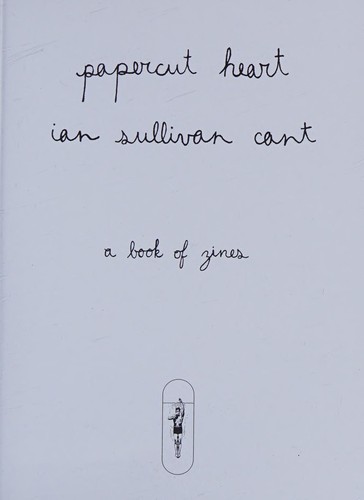 papercut heart
ian sullivan cant
a book of zines